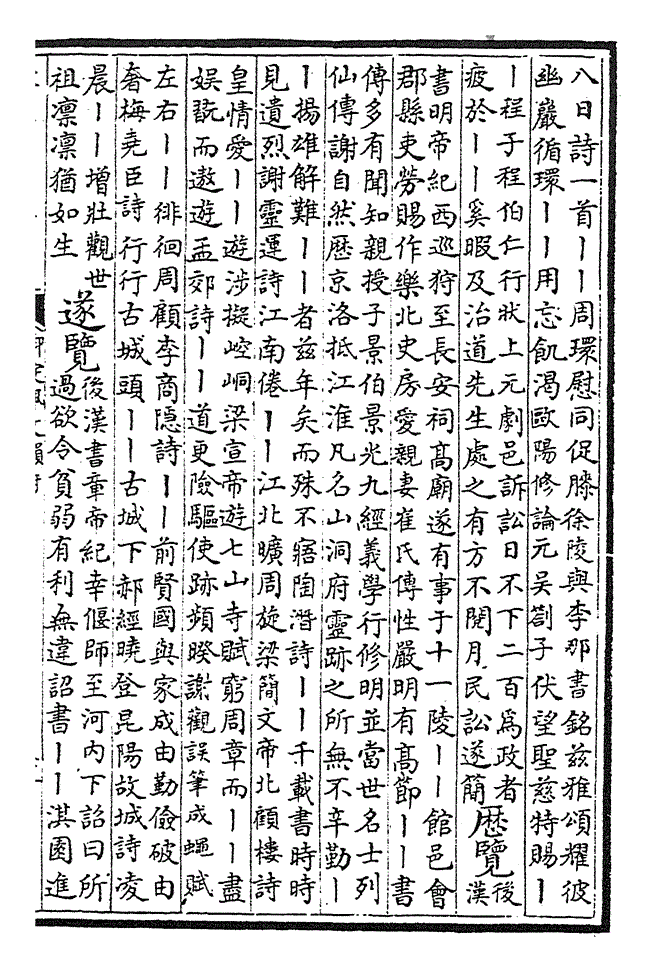 八日詩一首丨丨周環慰同促膝徐陵與李那書銘兹雅頌耀彼
幽巖循環丨丨用忘飢渴歐陽修論元吴劄子伏望聖慈特賜丨
丨程子程伯仁行狀上元劇邑訴訟日不下二百爲政者
疲於丨丨奚暇及治道先生處之有方不閱月民訟遂簡
歴覽
後
漢
書明帝紀西巡狩至長安祠髙廟遂有事于十一陵丨丨館邑會
郡縣吏勞賜作樂北史房愛親妻崔氏傳性嚴明有髙節丨丨書
傳多有聞知親授子景伯景光九經義學行修明並當世名士列
仙傳謝自然歴京洛抵江淮凡名山洞府靈跡之所無不辛勤丨
丨揚雄解難丨丨者兹年矣而殊不寤陶潛詩丨丨千載書時時
見遺烈謝靈運詩江南倦丨丨江北曠周旋梁簡文帝北顧樓詩
皇情愛丨丨遊涉擬崆峒梁宣帝遊七山寺賦窮周章而丨丨盡
娱翫而遨遊孟郊詩丨丨道更險驅使跡頻暌謝觀誤筆成蠅賦
左右丨丨徘徊周顧李商隱詩丨丨前賢國與家成由勤儉破由
奢梅堯臣詩行行古城頭丨丨古城下郝經曉登昆陽故城詩凌
晨丨丨增壯觀世
祖凛凛猶如生
遂覽
後漢書章帝紀幸偃師至河内下詔曰所
過欲令貧弱有利無違詔書丨丨淇園進